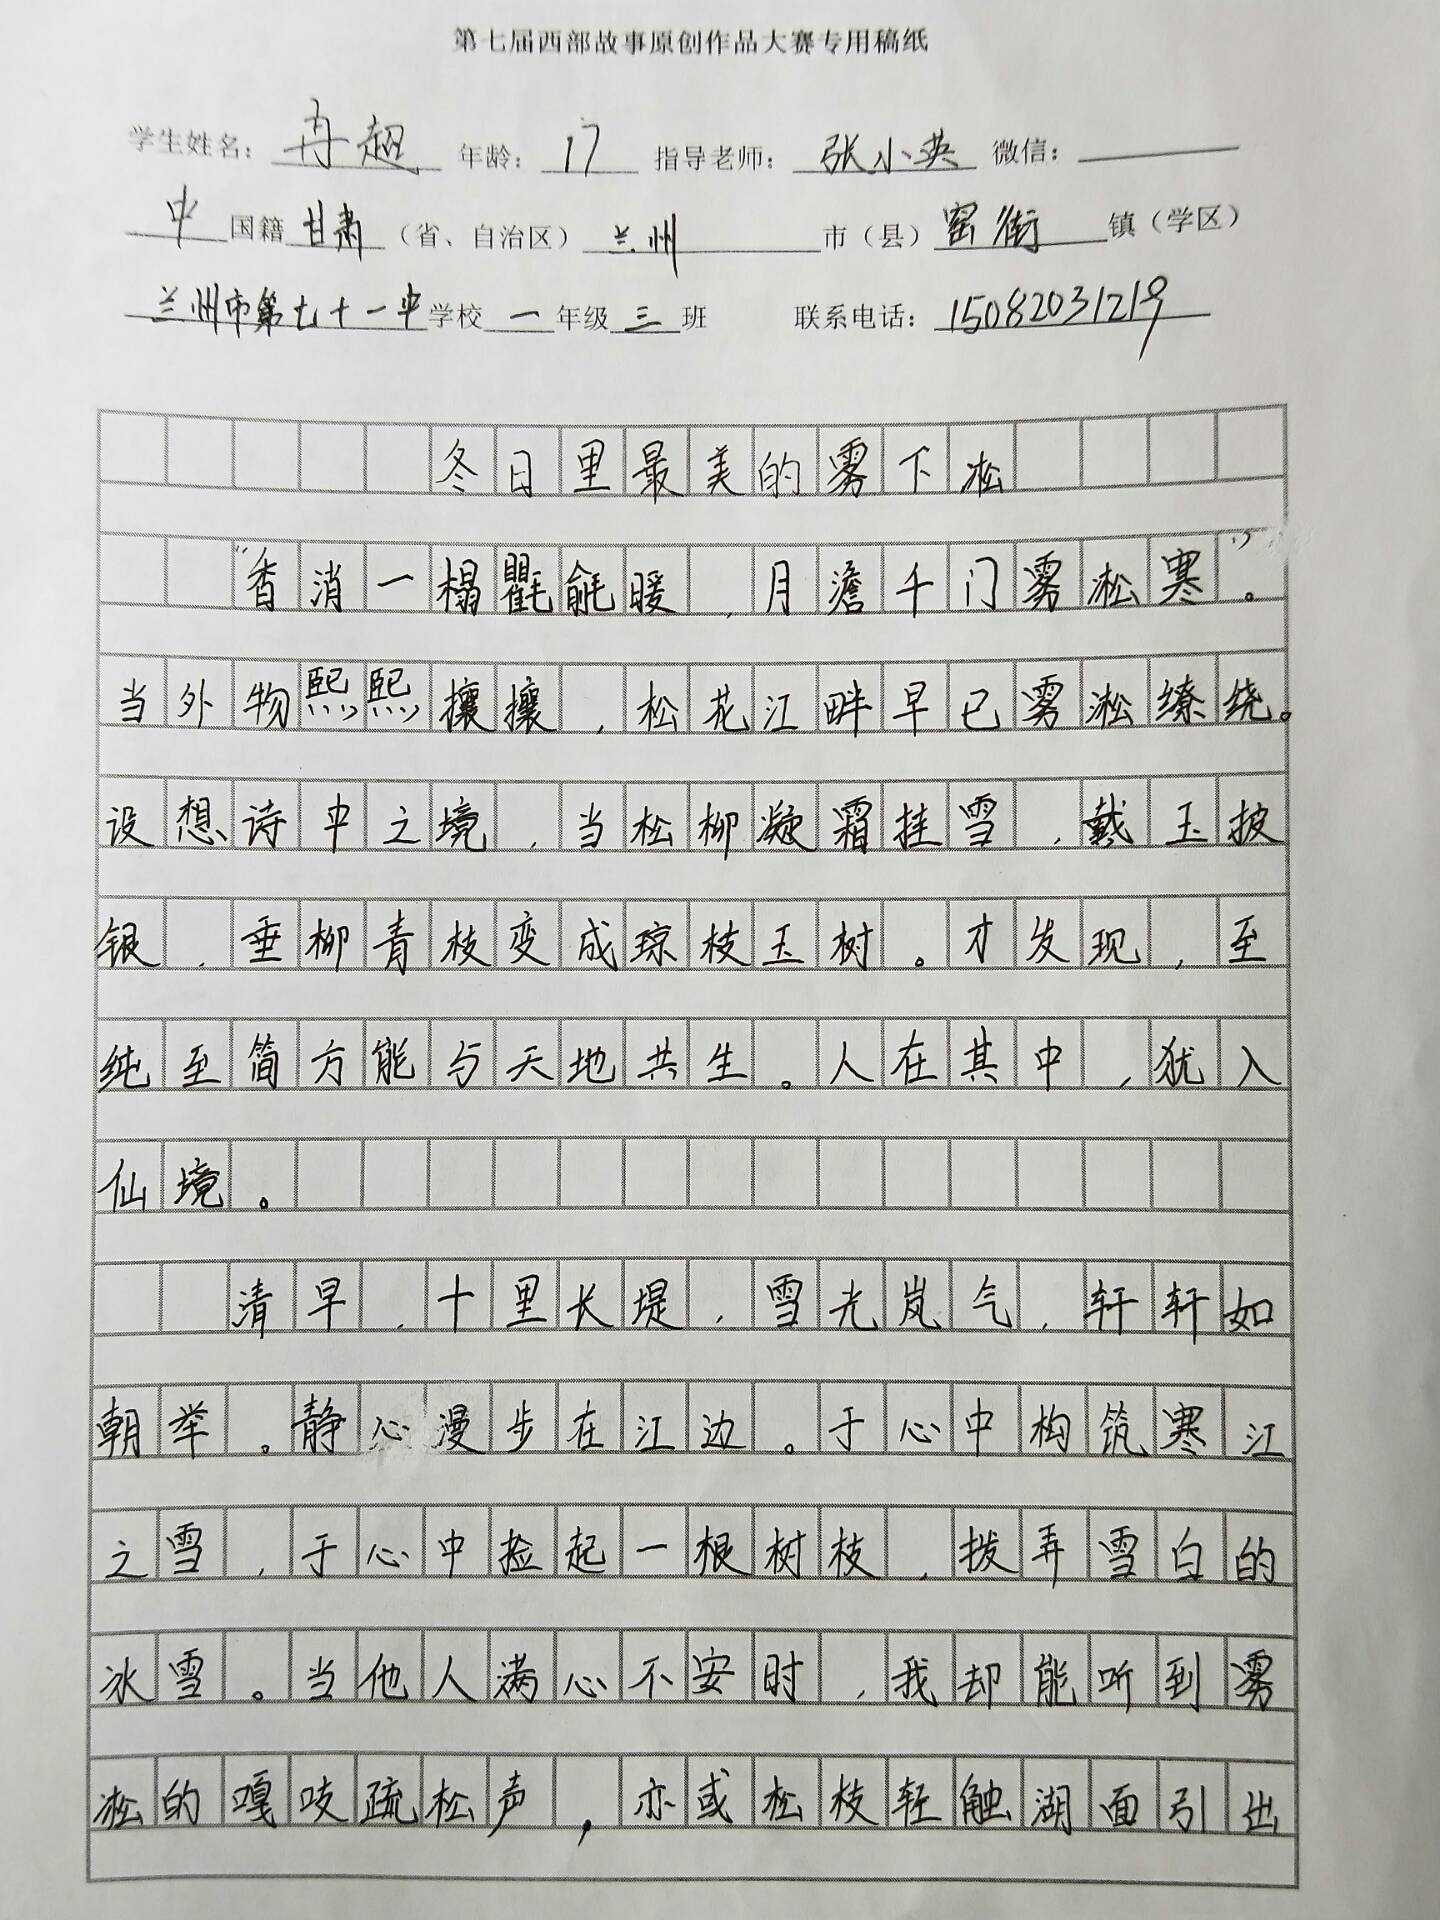 第七届西部故事原创作品大赛专用稿纸
学生姓名：冉超 年龄：17 指导老师：张小英 微信：
中国籍甘肃（省、自治区）兰州市（县）窑街镇（学区）
兰州市第七十一中学校一年级三班 联系电话：15082031219
冬日里最美的雾下凇
“香消一榻氍毹暖，月澹千门雾凇寒”。
当外物熙熙攘攘，松花江畔早已雾凇缭绕。
设想诗中之境，当松柳凝霜挂雪，戴玉披
银，垂柳青枝变成琼枝玉树。才发现，至
纯至简方能与天地共生。人在其中，犹入
仙境。
清早，十里长堤，雪光岚气，轩轩如
朝举。静心漫步在江边。于心中构筑寒江
之雪，于心中捡起一根树枝，拨弄雪白的
冰雪。当他人满心不安时，我却能听到雾
凇的嘎吱疏松声，亦或松枝轻触湖面引出